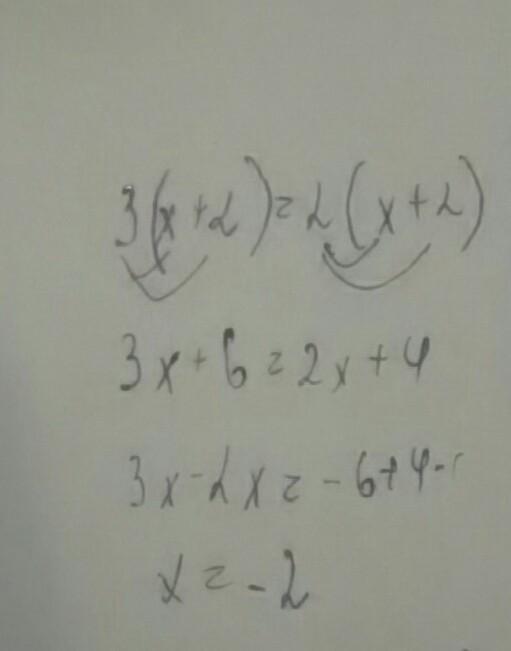 3(x+2)=2(x+2)
3x+6=2x+4
3x-2x=-6+4
x=-2